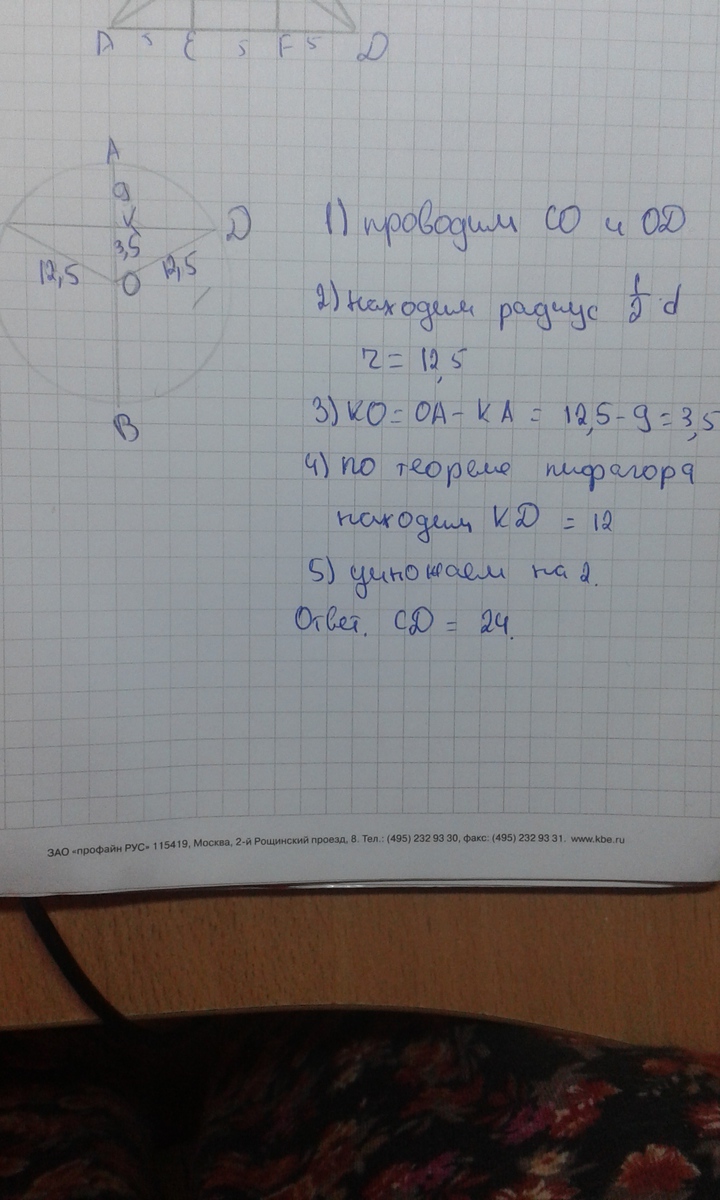 A 5 E 5 F 5 D
A
9
K
D
3,5
12,5
12,5
O
B
1) проводим CO и OD
2) находим радиус 1/2 d
r = 12,5
3) KO = OA - KA = 12,5 - 9 = 3,5
4) по теореме пифагора
находим KD = 12
5) умножаем на 2.
Ответ. CD = 24.
ЗАО «профайн РУС» 115419, Москва, 2-й Рощинский проезд, 8. Тел.: (495) 232 93 30, факс: (495) 232 93 31. www.kbe.ru